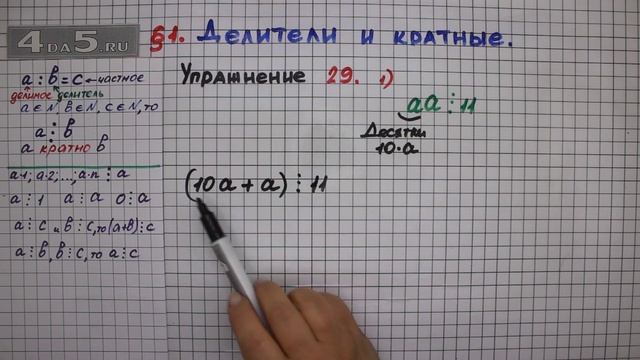 4 DA 5.RU
§1. Делители и кратные.
a : b = c ← частное
делимое делитель
a ∈ N, b ∈ N, c ∈ N, то
a ⋮ b
a кратно b
a·1; a·2; ...; a·n ⋮ a
a ⋮ 1 a ⋮ a 0 ⋮ a
a ⋮ c и b ⋮ c, то (a+b) ⋮ c
a ⋮ b, b ⋮ c, то a ⋮ c
Упражнение 29. 1)
aa ⋮ 11
Десятки
10·a
(10a + a) ⋮ 11